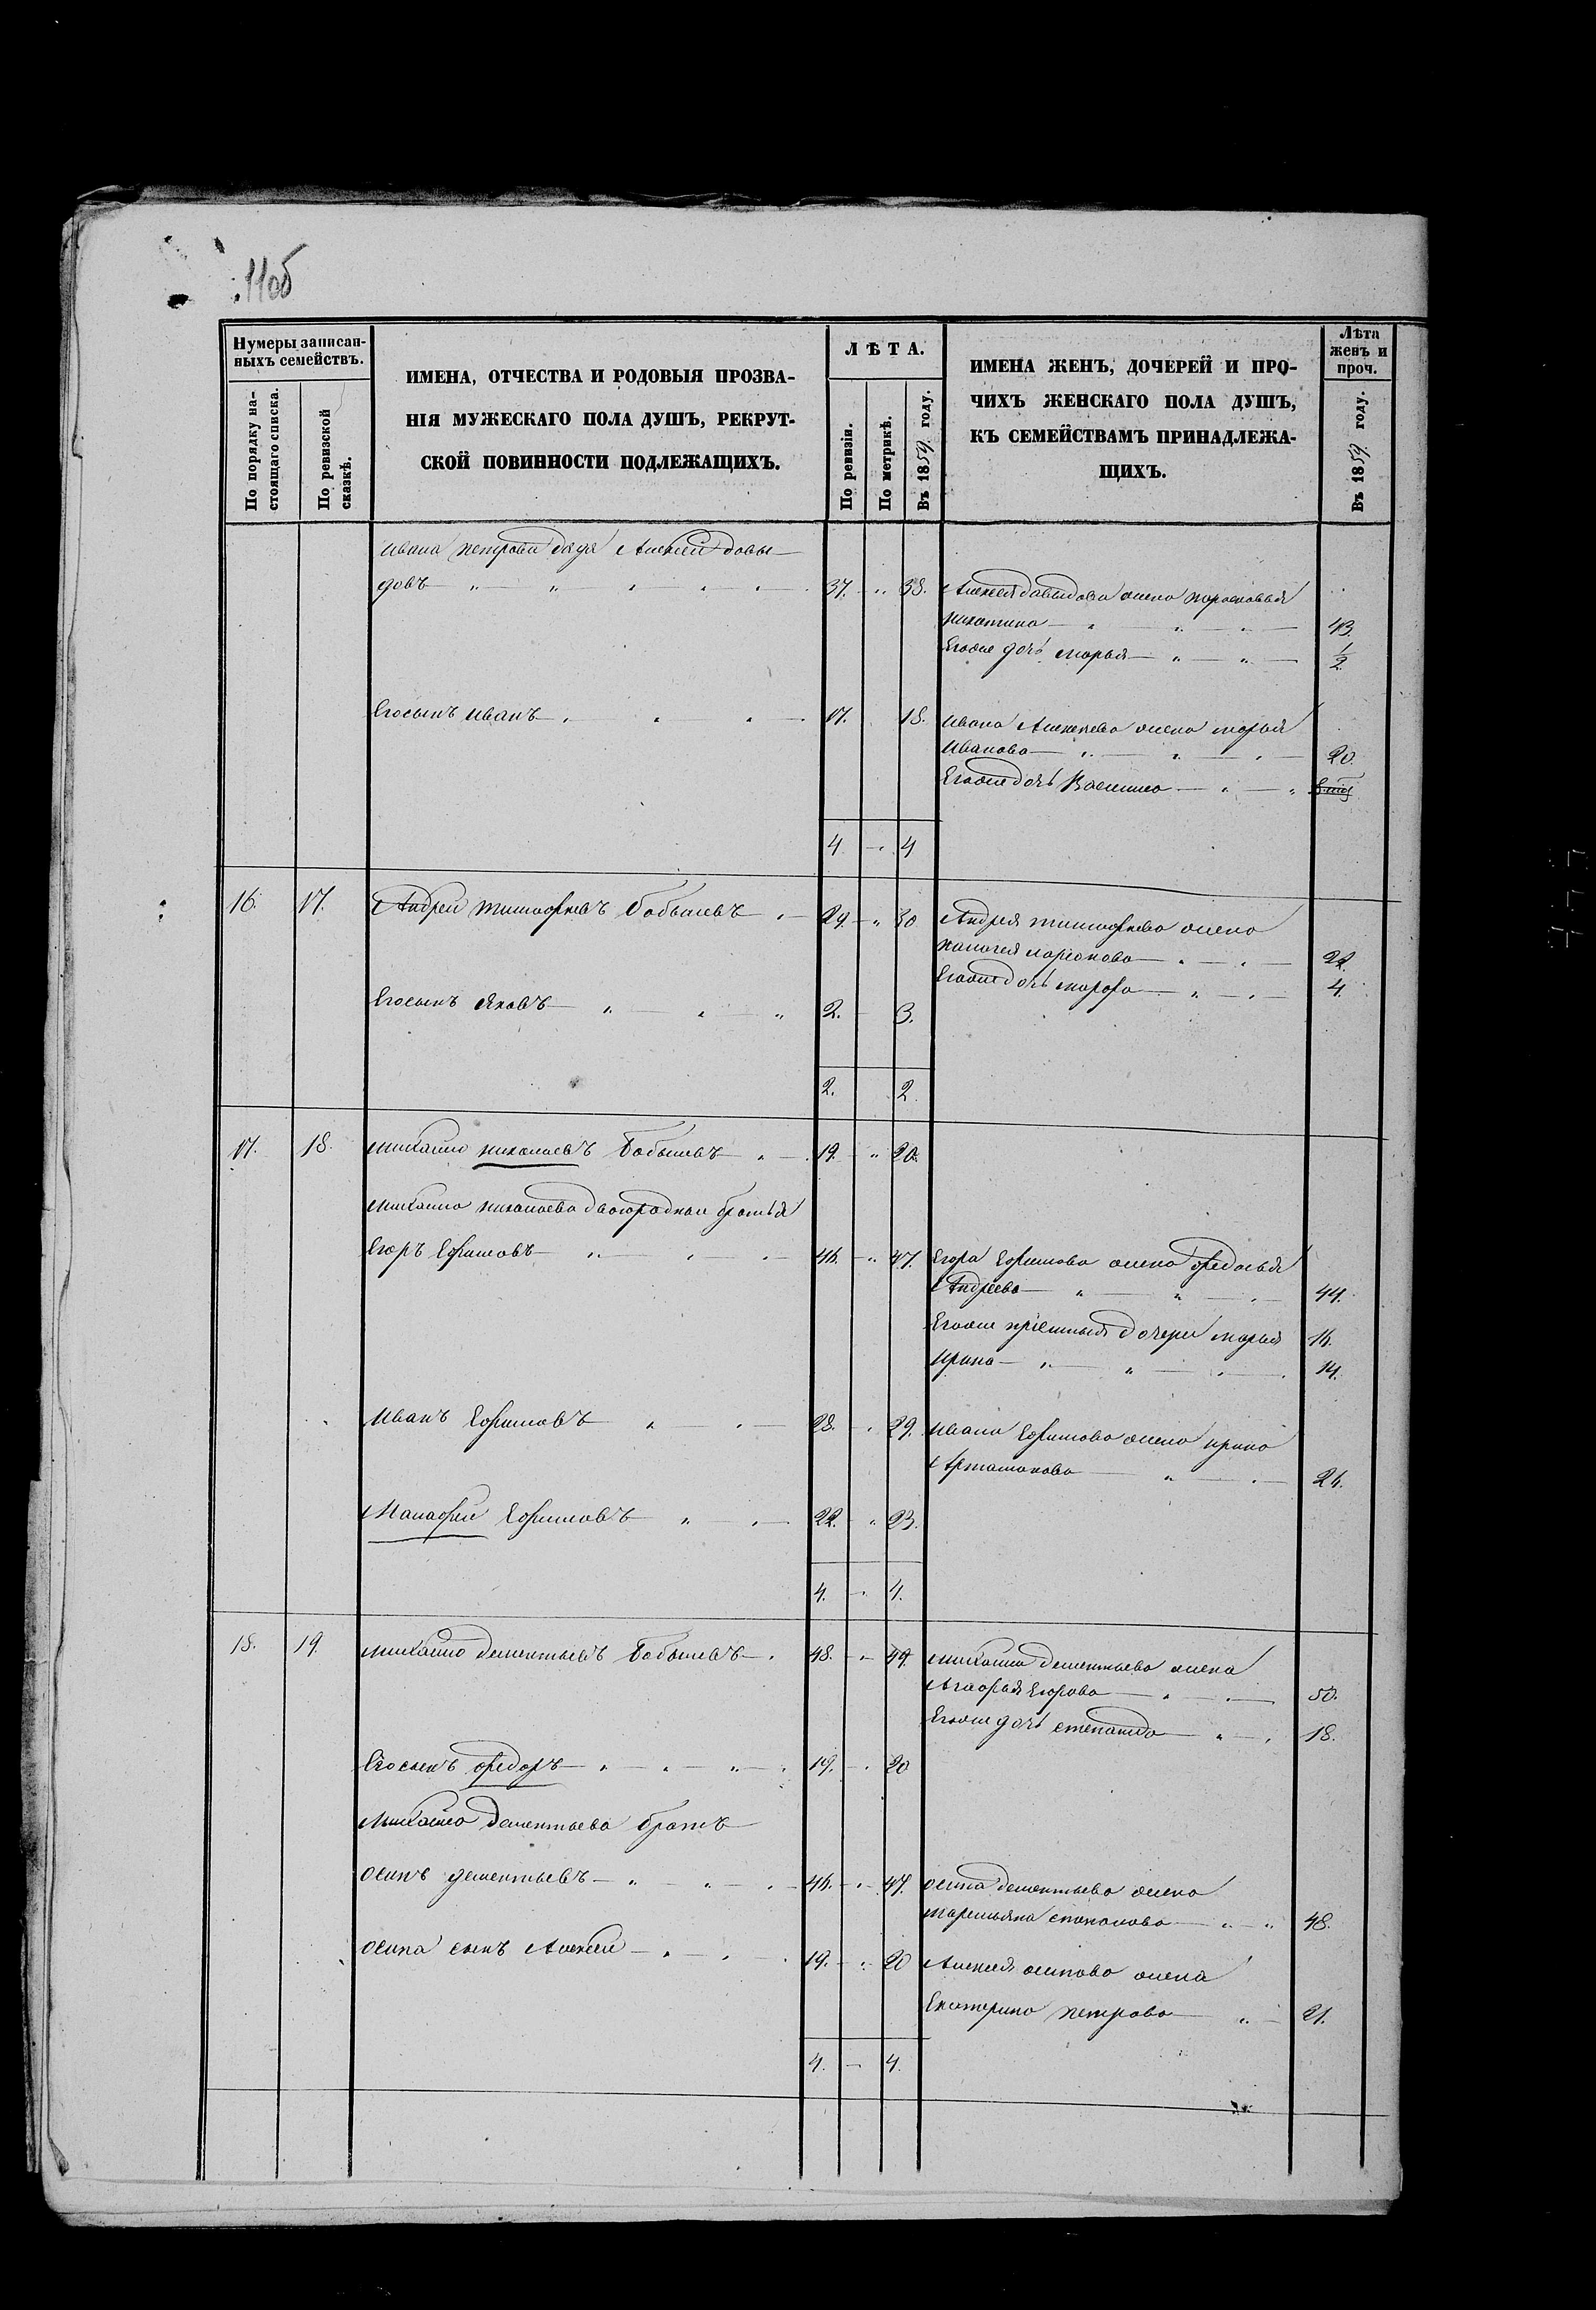 110б
Нумеры записан-
ныхъ семействъ.
По порядку на-
стоящаго списка.
По ревизской
сказкѣ.
ИМЕНА, ОТЧЕСТВА И РОДОВЫЯ ПРОЗВА-
НІЯ МУЖЕСКАГО ПОЛА ДУШЪ, РЕКРУТ-
СКОЙ ПОВИННОСТИ ПОДЛЕЖАЩИХЪ.
ЛѢТА.
По ревизіи.
По метрикѣ.
Въ 1859 году.
ИМЕНА ЖЕНЪ, ДОЧЕРЕЙ И ПРО-
ЧИХЪ ЖЕНСКАГО ПОЛА ДУШЪ,
КЪ СЕМЕЙСТВАМЪ ПРИНАДЛЕЖА-
ЩИХЪ.
Лѣта
женъ и
проч.
Въ 1859 году.
Ивана Петрова дядя Алексей Давы-
довъ 37. 38. Алексея Давыдова жена Парасковья
Никитина 43.
Егоже дочь Марья 1/2
Егосынъ Иванъ 17. 18. Ивана Алексеева жена Марья
Иванова 20.
Егоже дочь Василиса
4 4
16. 17. Андрей Тимофеевъ Бобылевъ 29. 30 Андрея Тимофеева жена
Пелагея Ларионова 22.
Егоже дочь Марфа 4.
Егосынъ Яковъ 2. 3.
2. 2.
17. 18. Михайло Николаевъ Бобылевъ 19. 20.
Михайла Николаева двоюродные братья
Егоръ Ефимовъ 46. 47. Егора Ефимова жена Федосья
Андреева 44.
Егоже приемныя дочери Марья 16.
Ирина 14.
Иванъ Ефимовъ 28. 29. Ивана Ефимова жена Ирина
Артамонова 26.
Малафей Ефимовъ 22. 23.
4. 4.
18. 19. Михайло Дементьевъ Бобылевъ 48. 49. Михайла Дементьева жена
Агафья Егорова 50.
Егоже дочь Степанида 18.
Егосынъ Федоръ 19. 20
Михайла Дементьева братъ
Осипъ Дементьевъ 46. 47. Осипа Дементьева жена
Маремьяна 48.
Осипа сынъ Алексей 19. 20 Алексея Осипова жена
Екатерина Петрова 21.
4. 4.